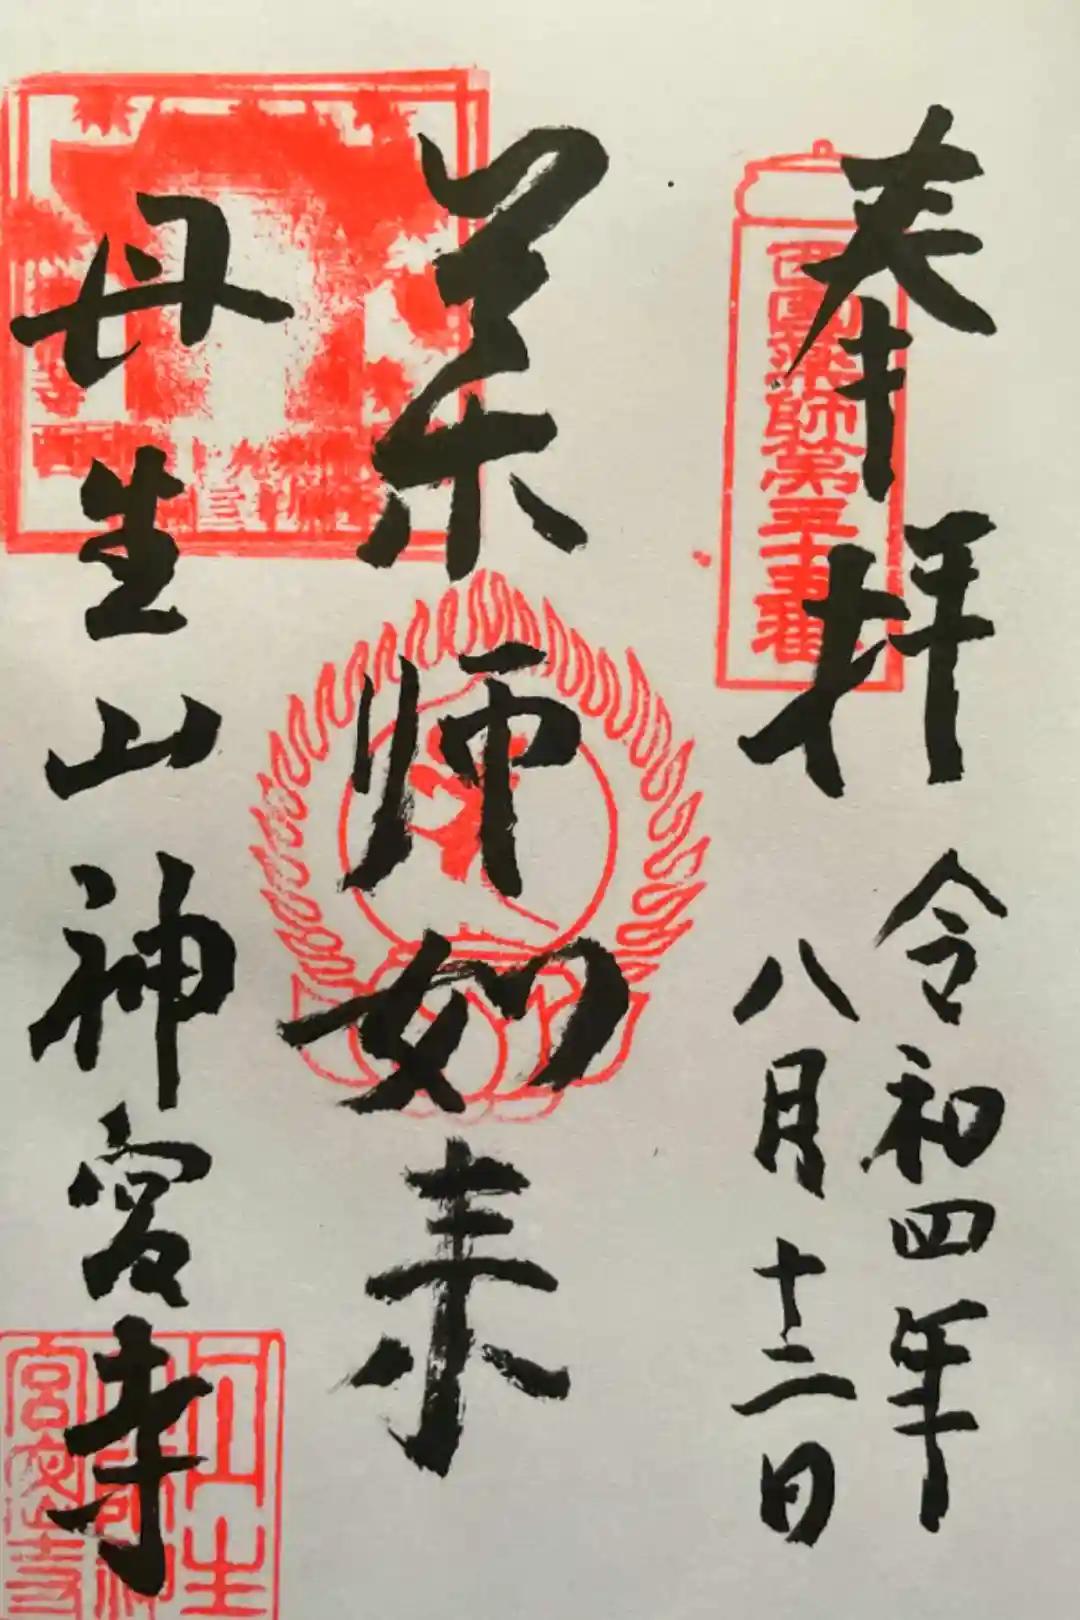 奉拝
令和四年
八月十二日
西国薬師第三十五番
薬師如来
丹生山神宮寺